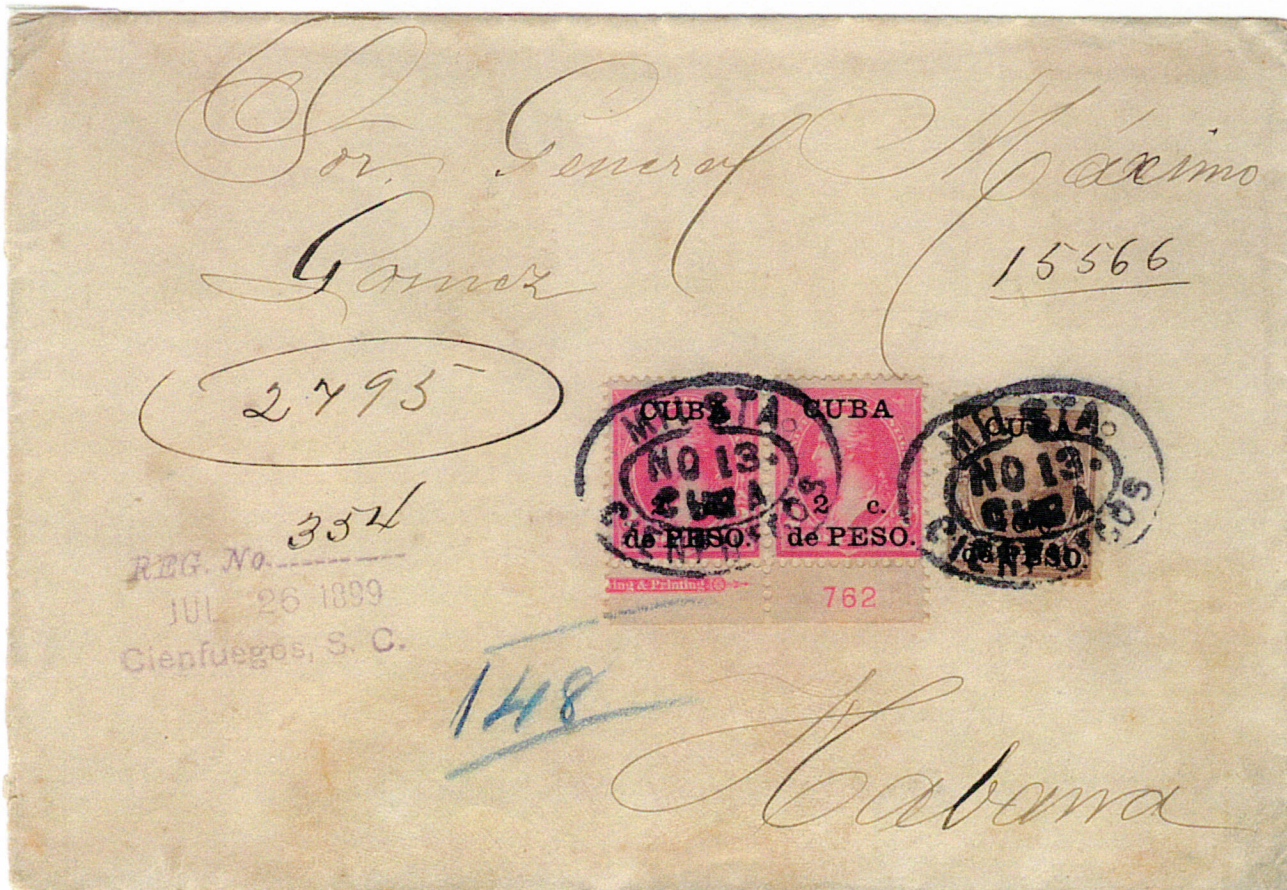 Sor. General Máximo
Gomez
15566
2795
354
REG. No.
JUL 26 1899
Cienfuegos, S. C.
148
CUBA
de PESO.
CUBA
2 c.
de PESO.
CUBA
de PESO.
MIL. STA.
NO 13.
CUBA
CIENFUEGOS
MIL. STA.
NO 13.
CUBA
CIENFUEGOS
ing & Printing
762
Habana